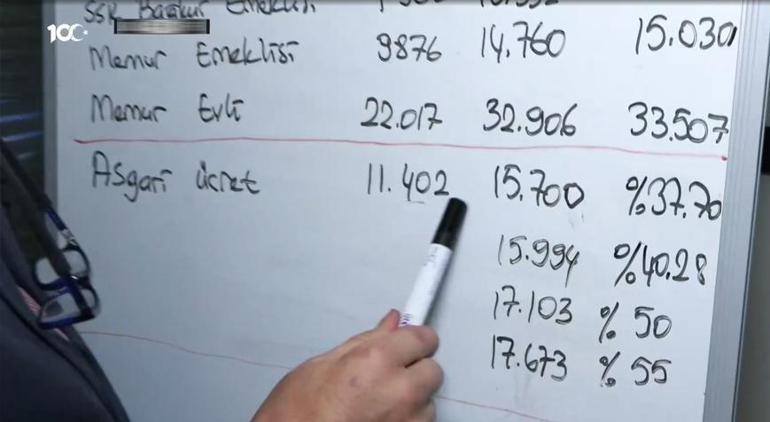 100
SSK Bağkur Emeklisi
Memur Emeklisi 9876 14.760 15.030
Memur Evli 22.017 32.906 33.507
Asgari ücret 11.402 15.700 %37.70
15.994 %40.28
17.103 % 50
17.673 % 55